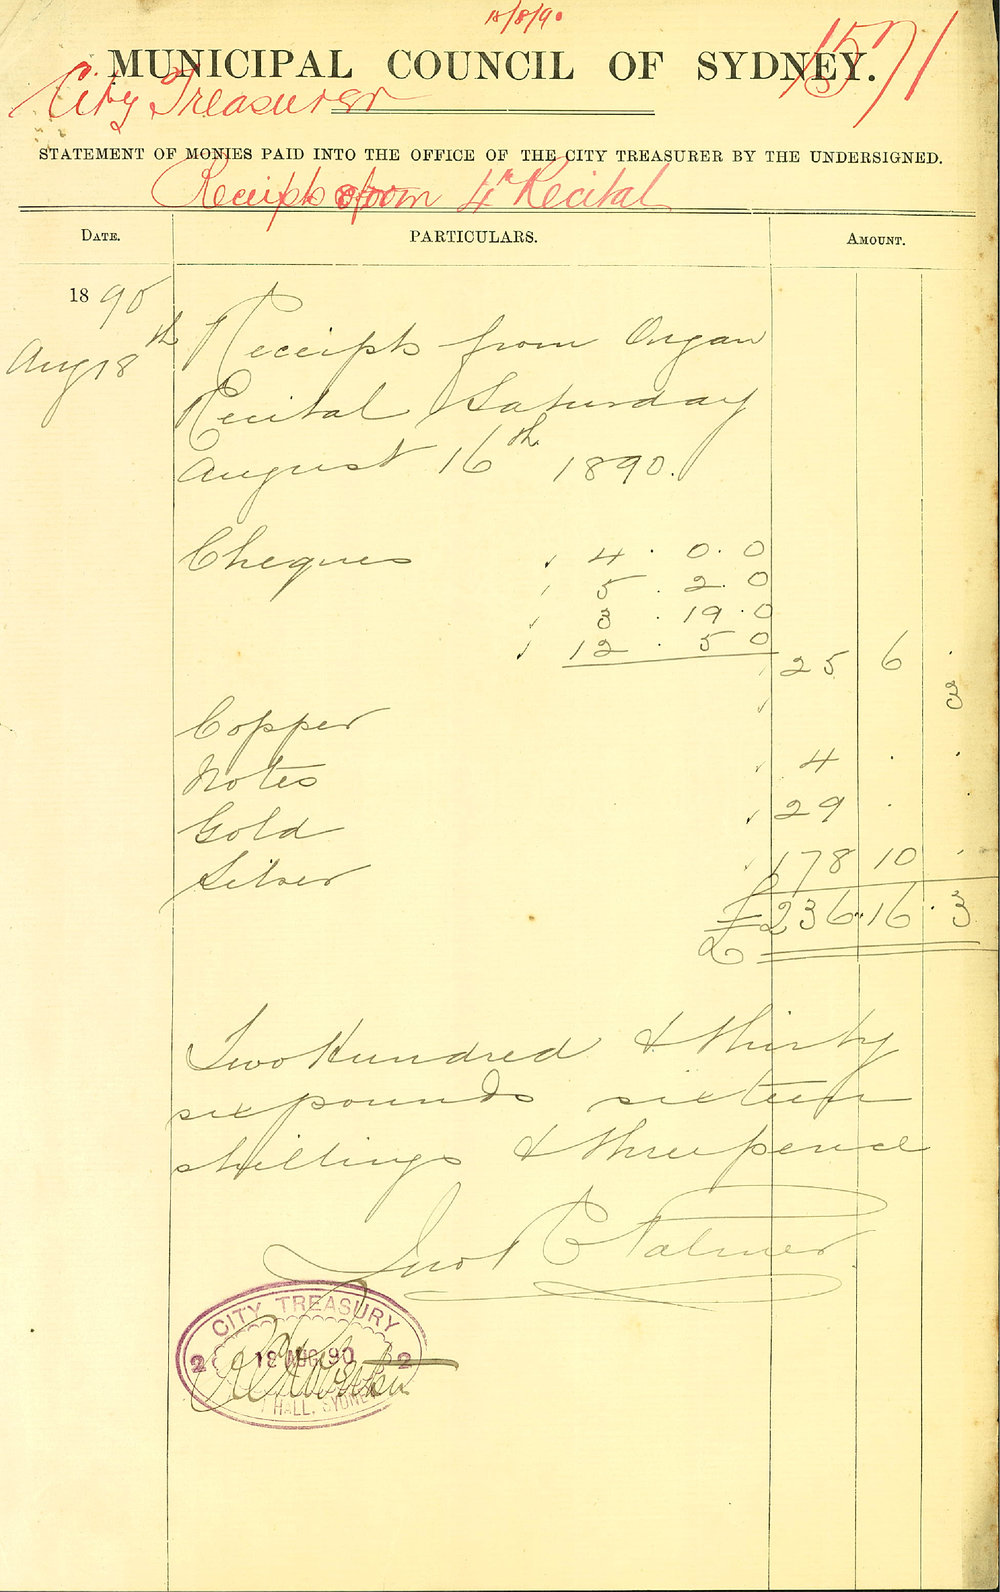 18/8/90
1571
MUNICIPAL COUNCIL OF SYDNEY.
City Treasurer
STATEMENT OF MONIES PAID INTO THE OFFICE OF THE CITY TREASURER BY THE UNDERSIGNED.
Receipts from 4th Recital
DATE. PARTICULARS. AMOUNT.
1890
Aug 18th Receipts from Organ
Recital Saturday
August 16th 1890.
Cheques 4 . 0 . 0
5 . 2 . 0
3 . 19 . 0
12 . 5 0
25 6 .
Copper 3
Notes 4 . .
Gold 29 . .
Silver 178 10 .
£236.16.3
Two Hundred & thirty
six pounds sixteen
shillings & threepence
Palmer
CITY TREASURY
2 18 AUG 90 2
HALL, SYDNEY